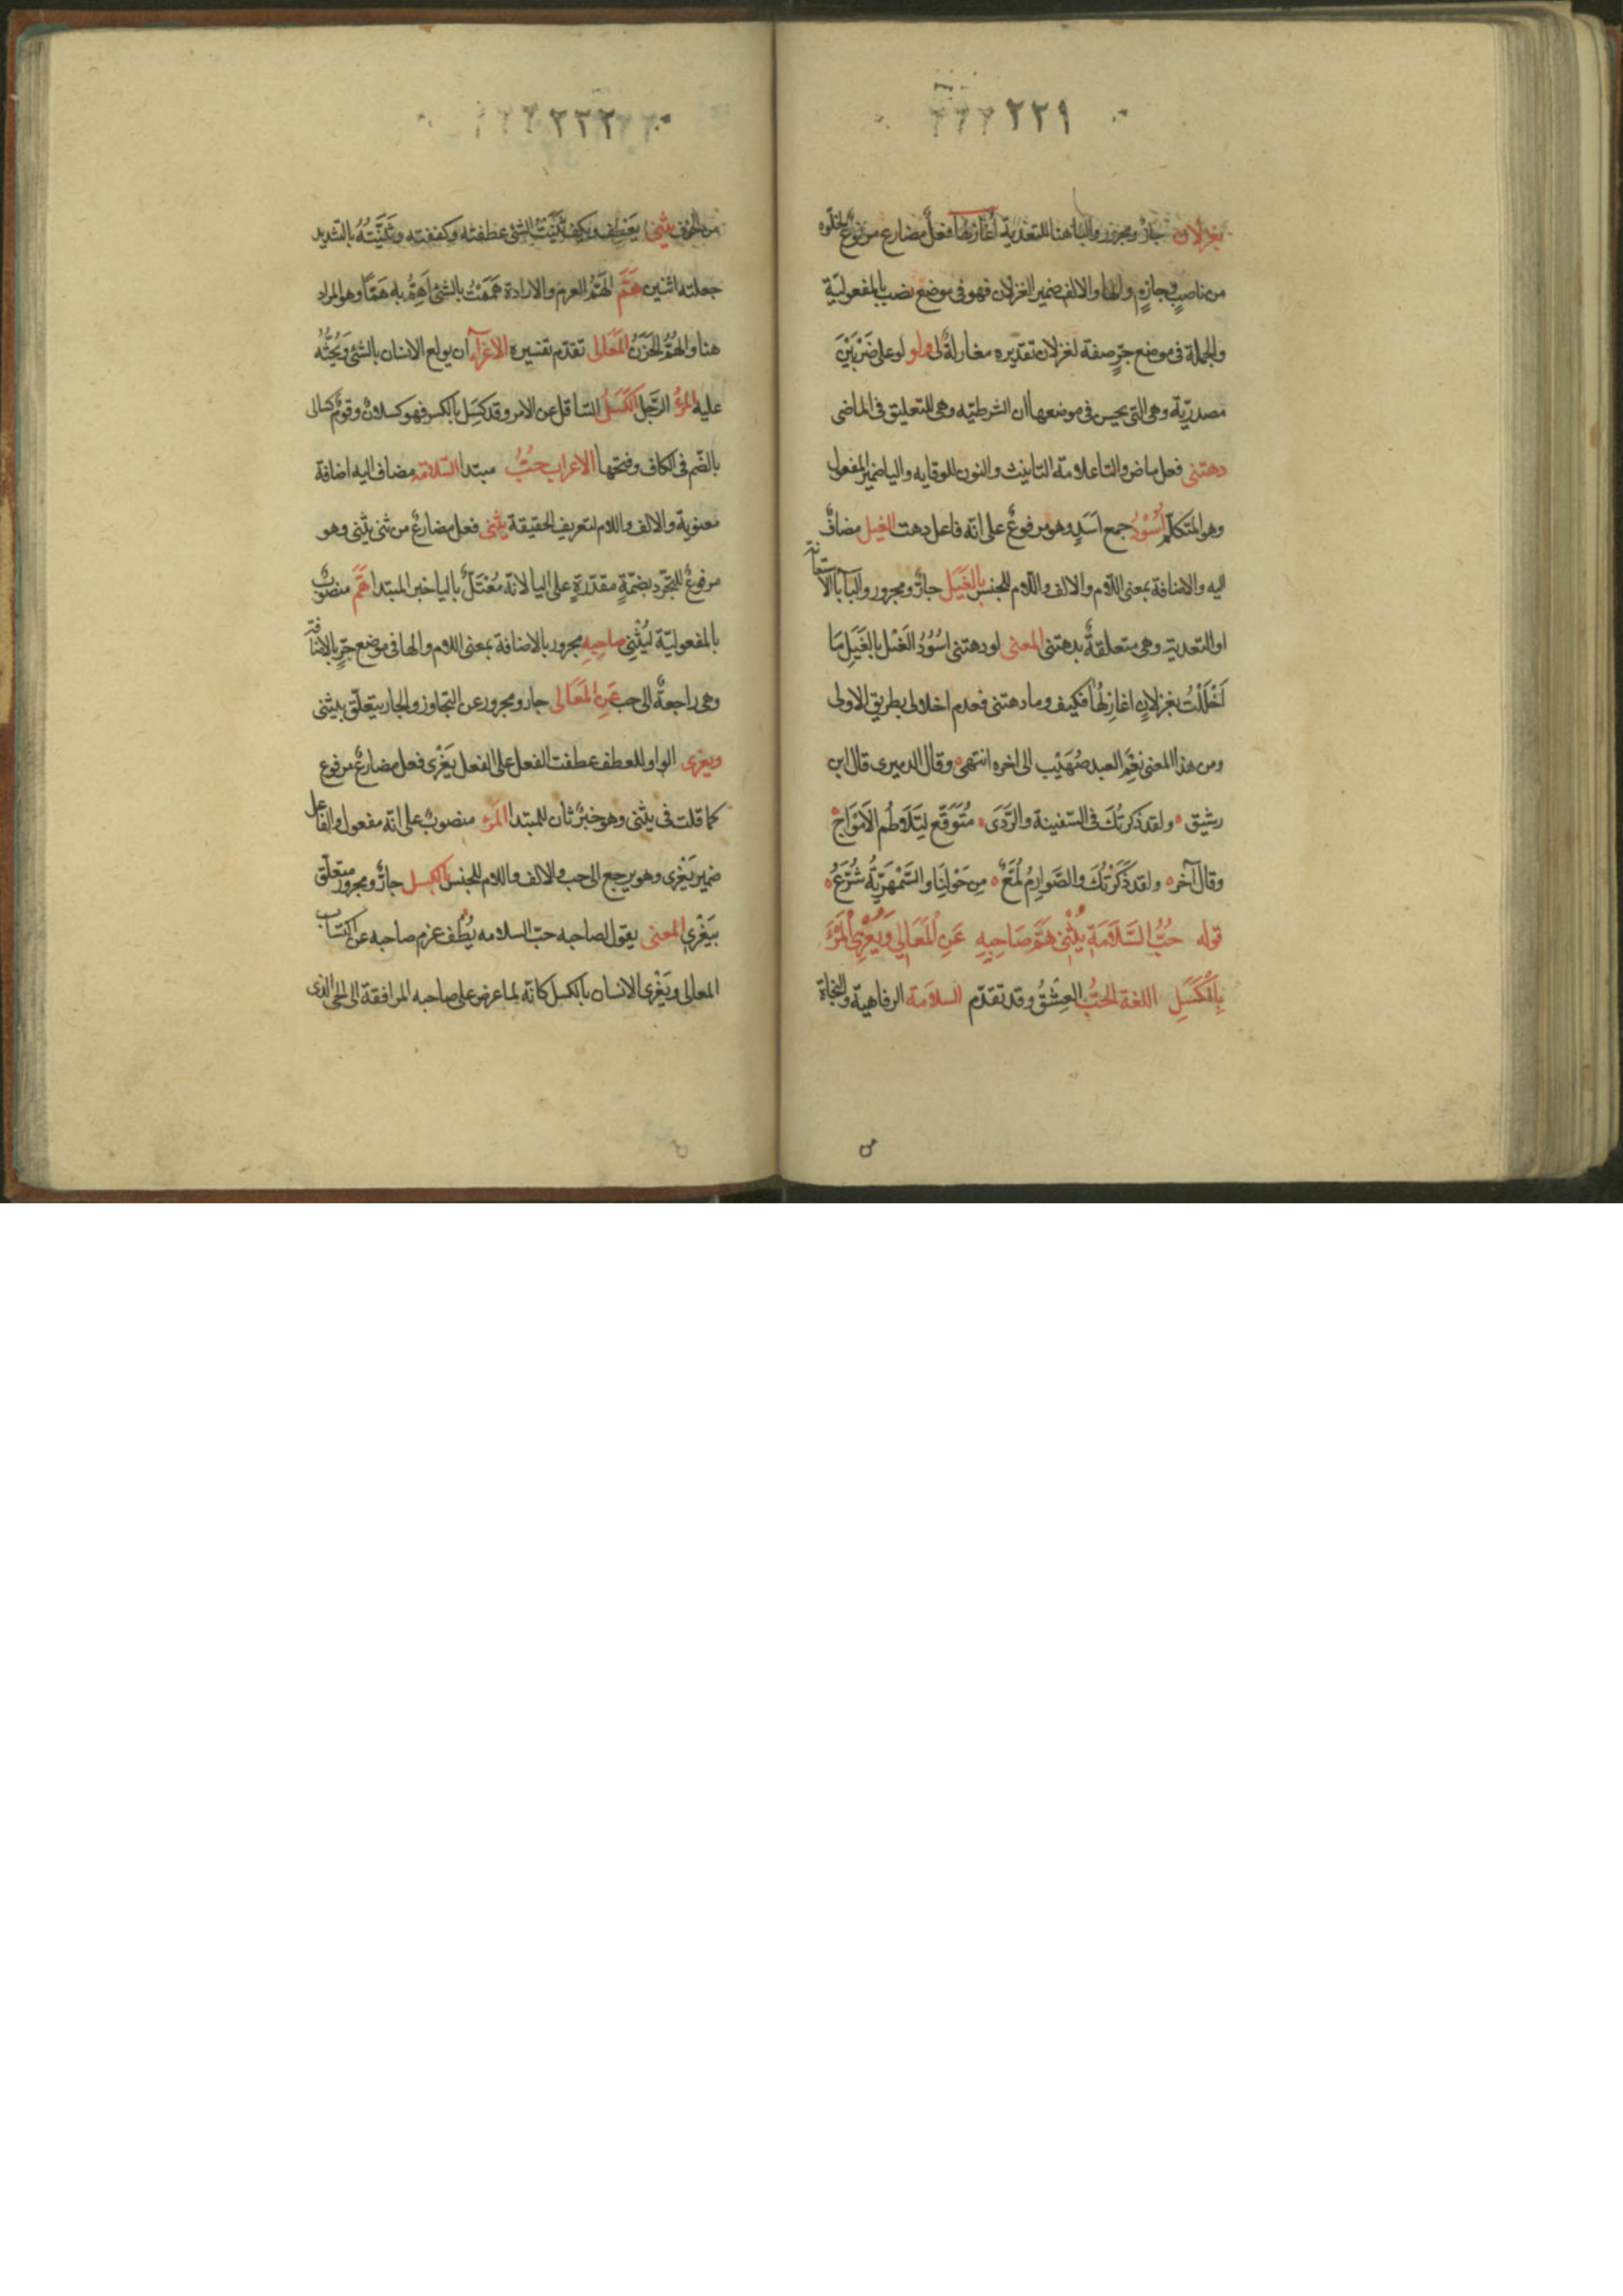 ٢٢٩
بغزلان جارٌ ومجرور والبا هنا للتعدية أُغَازِلُهَا فعلٌ مضارع مرفوعٌ لخلوّه
من ناصبٍ وجازمٍ والها والالف ضمير الغزلان فهو فى موضع نصب بالمفعوليّة
والجملة فى موضع جرٍّ صفة لغزلان تقديره مغازلةٌ لى ولو لو على ضَرْبَيْنَ
مصدريّة وهى التى يحسن فى موضعها أن الشرطيّه وهى للتعليق فى الماضى
دهتنى فعل ماض والتا علامة التانيث والنون للوقايه واليا ضمير المفعول
وهو المتكلّم أُسُوْدُ جمع اَسَدٍ وهو مرفوعٌ على انّه فاعل دهت الغيل مضافٌ
اليه والاضافة بمعنى اللّام والالف واللّام للجنس بالغَيَل جارٌّ ومجرور والبآ بآ الاستعانة
او التعدية وهى متعلقةٌ بدهتنى المعنى لو دهتنى اسُوُدُ الغَيل بالغَيَل مَا
اَخْلَلْتُ بغزلانٍ اغازِلُهَا فكيف وما دهتنى فعدم اخلالى بطريق الاولى
ومن هذا المعنى نِعْمَ العبد صُهَيْب الى اخره انتهى ه وقال الدميرى قال ابن
رشيق ه ولقد ذكرتُكَ فى السّفينة والرَّدَى ه مُتَوَقَّع لِتَلَاطُم الاَمْوَاجِ ه
وقال آخر ه ولقد ذَكَرْتُكَ والصَّوارِمُ لُمَّعٌ ه مِن حَوْلِنَا والسَّمْهَرِيَّةُ شُرَّعُ ه
قوله حُبُّ السَّلَامَةِ يُثْنِي هَمَّ صَاحِبِهِ عَنِ الْمَعَالِي وَيُغْرِي الْمَرْءَ
بِالْكَسَلِ اللغة الحبُّ العِشْقُ وقد تقدّم السلاَمة الرفاهيّة والنجاة
من
٢٣٢
من الخوف يثنى يَعْطِف ويَكِف ثَنَيْتُ الشئ عطفته وكففته وثَنَيَّتُهُ بالتشديد
جعلته اثنين هَمّ الهَمُّ العزم والارادة هَمَمْتُ بالشئ اَهِمُّ به هَمًّا وهو المراد
هنا والهمُّ الحَزَنُ المَعَالى تقدّم تفسيره الاغرآء ان يولع الانسان بالشئ وَيُحثُّه
عليه المرء الرَّجل الكَسَلُ التثاقل عن الامر وقد كَسِل بالكسر فهو كسلانٌ وقومٌ كسالى
بالضّم فى الكاف وفتحها الاعراب حُبُّ مبتدا السّلامة مضاف اليه اضافة
معنوية والالف واللام لتعريف الحقيقة يثنى فعل مضارعٌ من ثنى يثنى وهو
مرفوعٌ للتجرّد بضمّةٍ مقدّرةٍ على اليا لانّه مُعْتَلٌّ باليا خبر المبتدا هَمَّ منصوبٌ
بالمفعوليّة ليُثْنِى صاحِبِهِ مجرور بالاضافة بمعنى اللام والها فى موضع جرٍّ بالاضافة
وهى راجعةٌ الى حب عَنِ المَعَالى جار ومجرور عن التجاوز والجار يتعلّق بيثنى
ويغرى الواو للعطف عطفت الفعل على الفعل يَغْرى فعل مضارعٌ مرفوع
كما قلت فى يثنى وهو خبرٌ ثان للمبتدا المَرْء منصوبٌ على انّه مفعول والفاعل
ضمير يَغْرى وهو يرجع الى حب والالف واللام للجنس بالكسل جارٌّ ومجرور متعلّق
بيَغْري المعنى يقول لصاحبه حبّ السلامه يُطْف عزم صاحبه عن اكتساب
المعالى ويَغْرى الانسان بالكسل كانّه لما عرض على صاحبه المرافقة الى الحى الذى